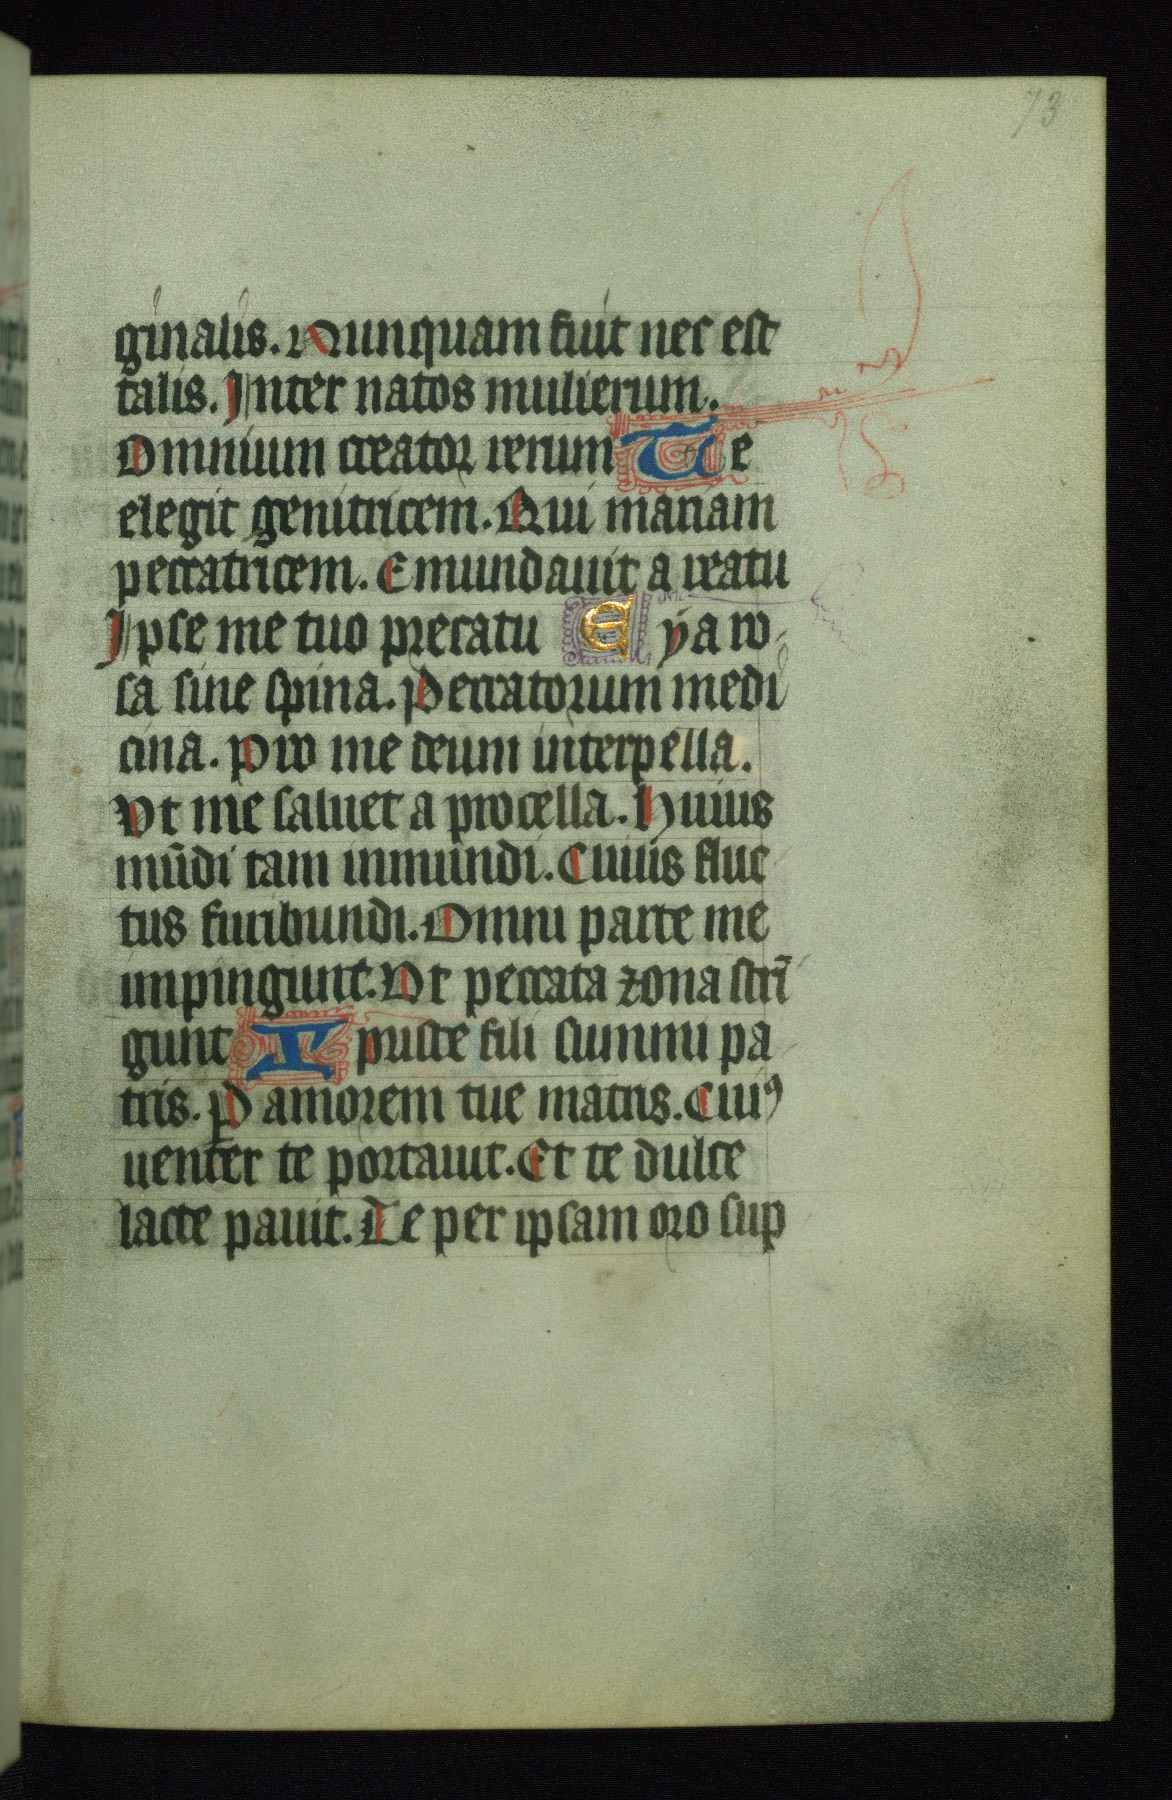 73
ginalis. Nunquam fuit nec est
talis. Inter natos mulierum.
Omnium creator rerum Te
elegit genitricem. Qui mariam
peccatricem. Emundauit a reatu
Ipse me tuo precatu Eya ro
sa sine spina. Peccatorum medi
cina. Pro me deum interpella.
Vt me saluet a procella. Huius
mūdi tam inmundi. Cuius fluc
tus furibundi. Omni parte me
inpingunt. Vt peccata zona strī
gunt I puste fili summi pa
tris. P amorem tue matris. Cuiꝰ
uenter te portauit. Et te dulce
lacte pauit. Te per ipsam oro sup